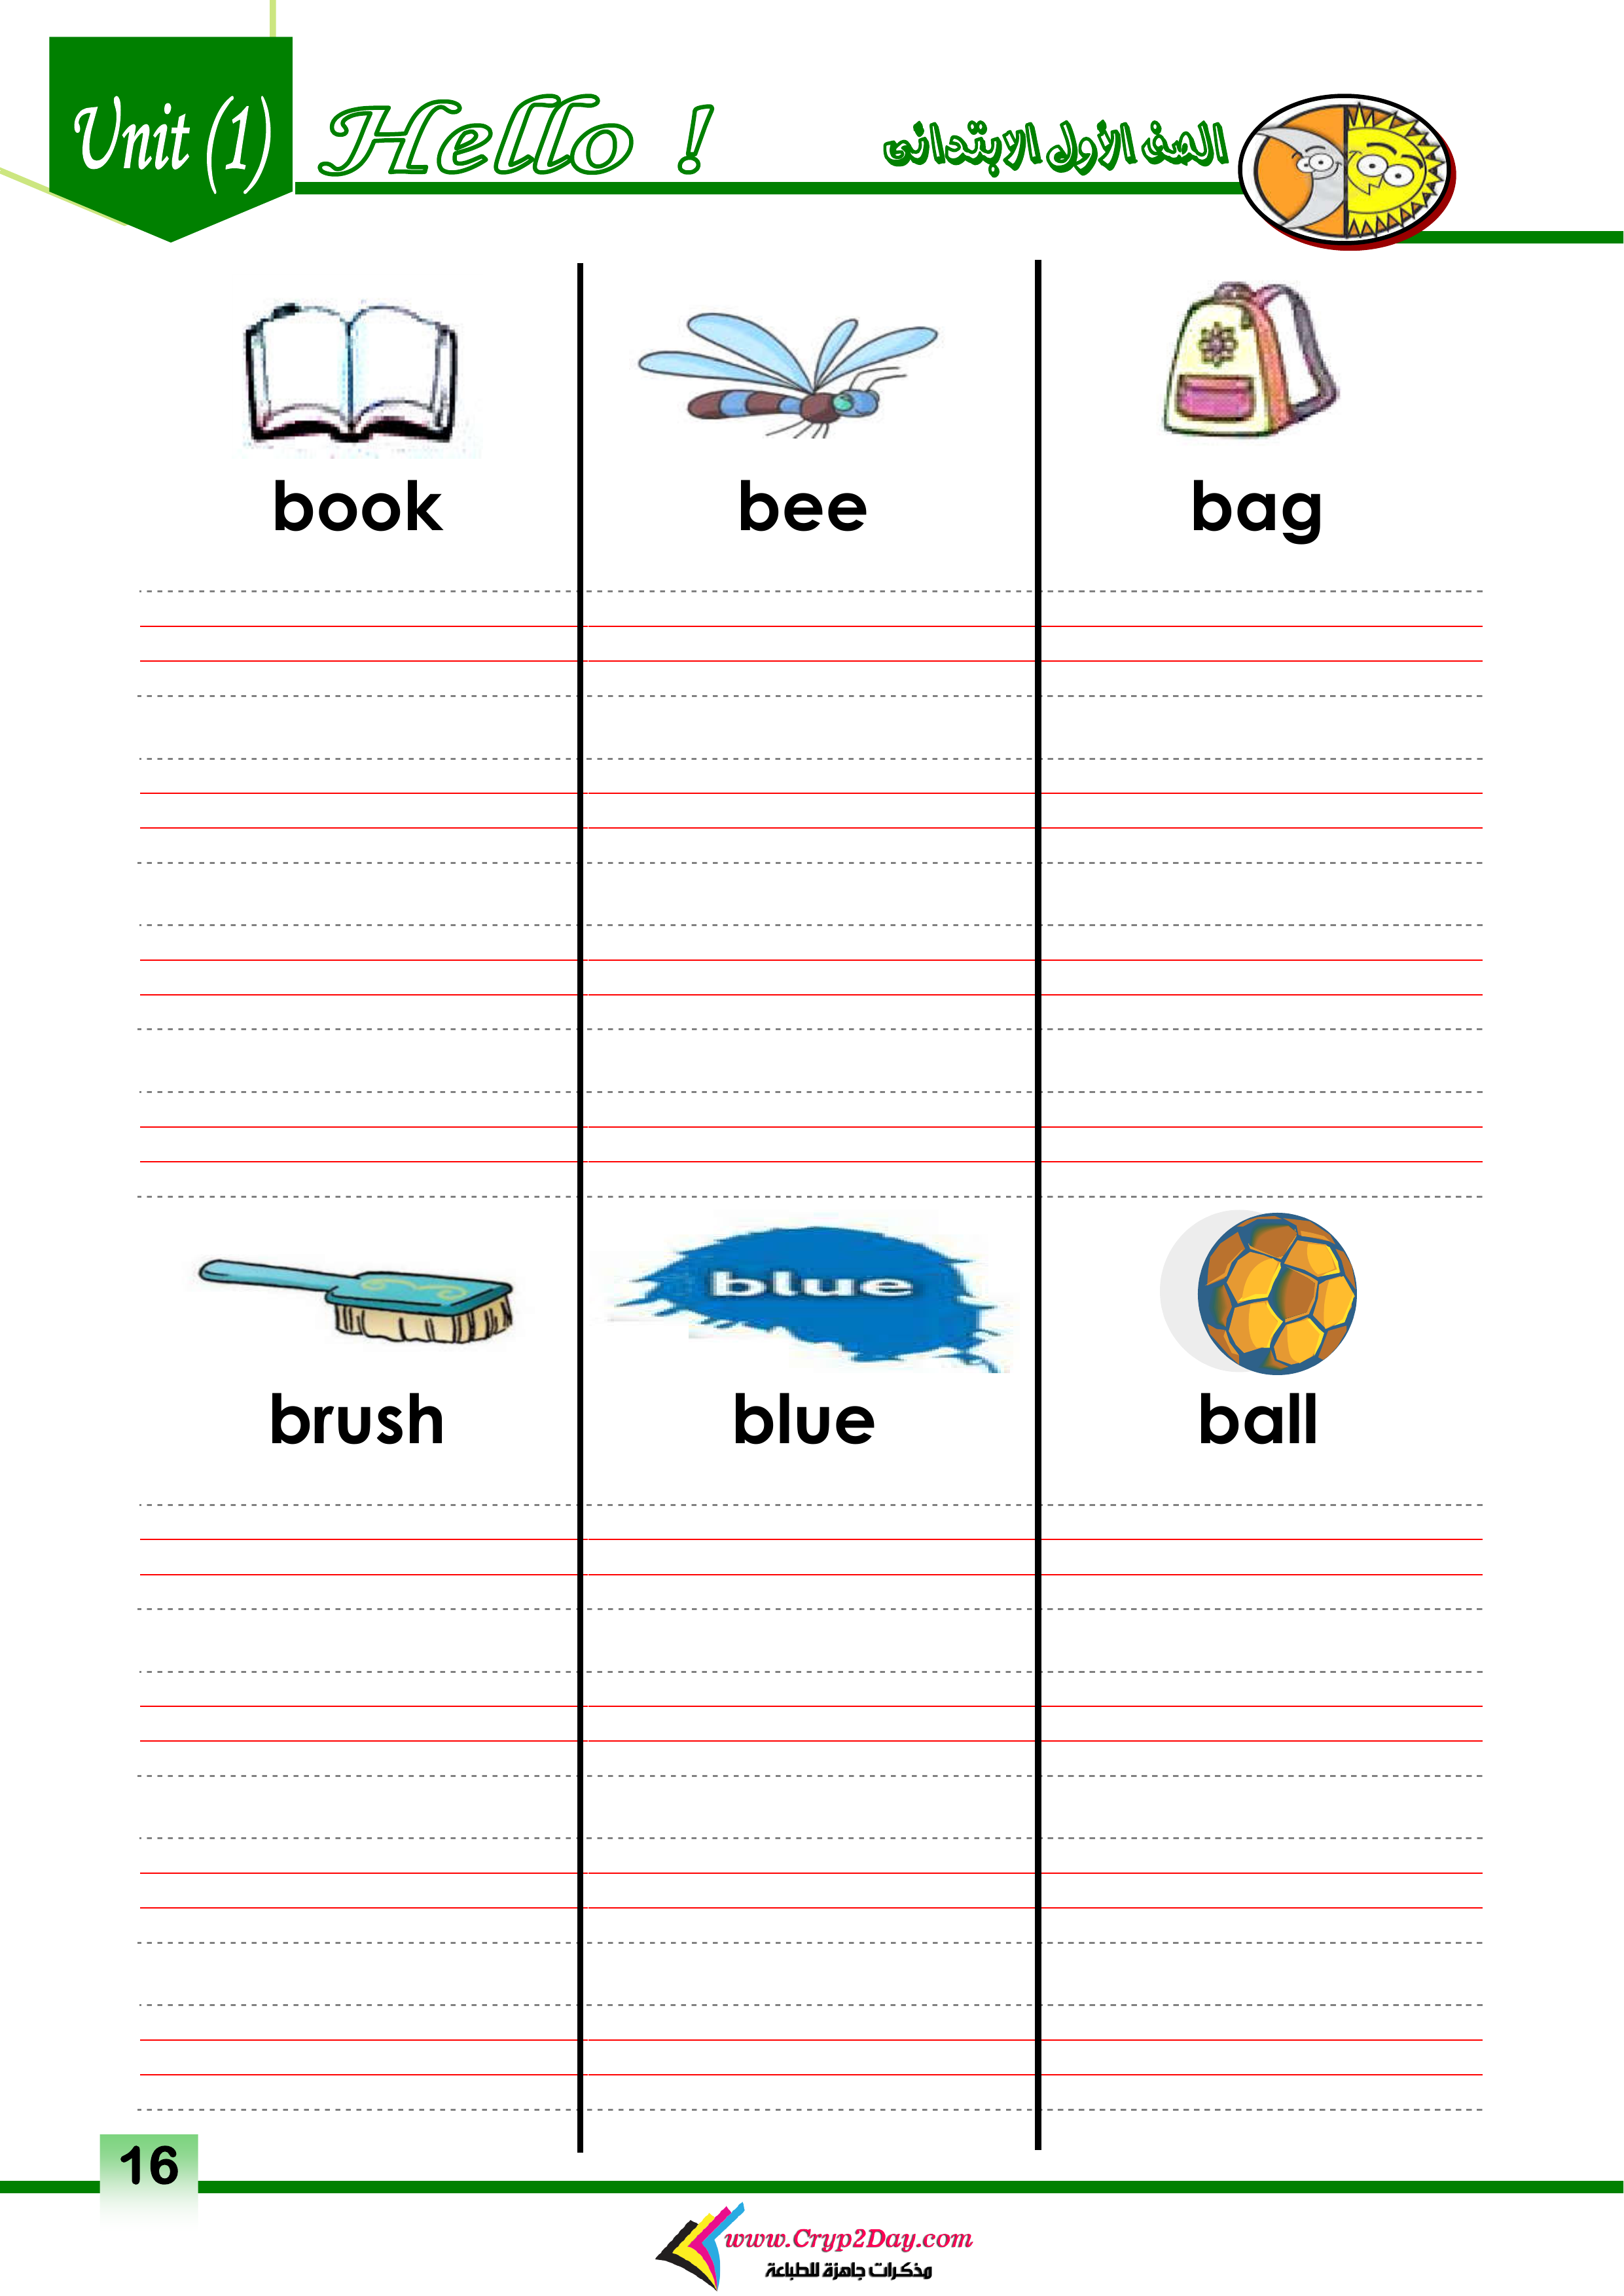 Unit (1) Hello ! الصف الأول الابتدائى
book bee bag
blue
brush blue ball
16
www.Cryp2Day.com
مذكرات جاهزة للطباعة